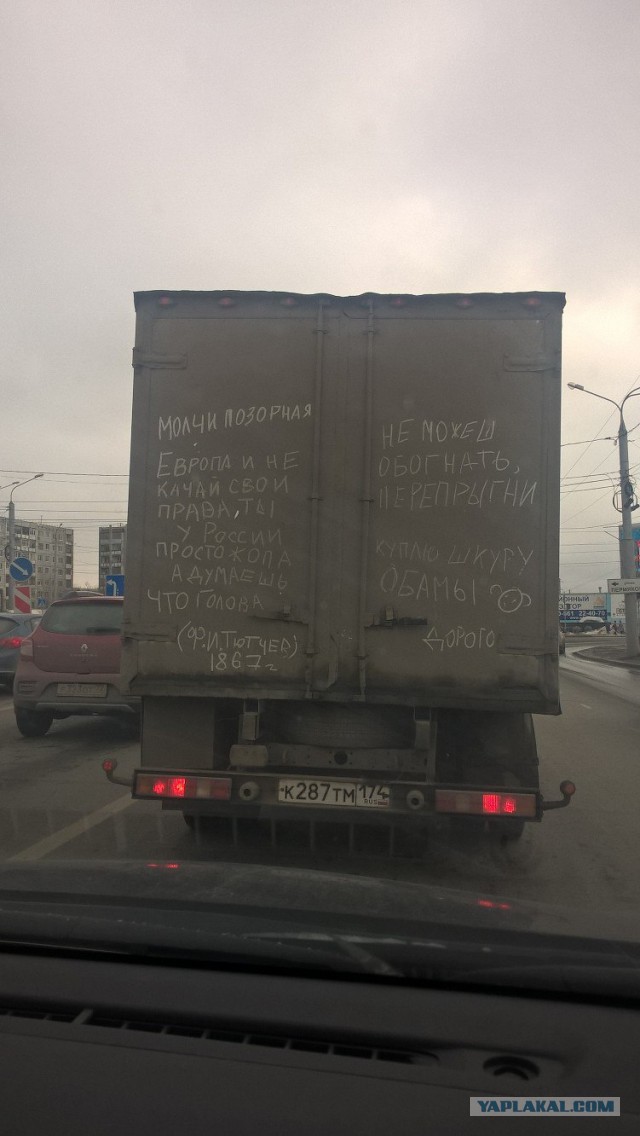 МОЛЧИ ПОЗОРНАЯ
ЕВРОПА И НЕ
КАЧАЙ СВОИ
ПРАВА, ТЫ
У РОССИИ
ПРОСТО ЖОПА
А ДУМАЕШЬ
ЧТО ГОЛОВА
(Ф.И. ТЮТЧЕВ)
1867г
НЕ МОЖЕШ
ОБОГНАТЬ,
ПЕРЕПРЫГНИ
КУПЛЮ ШКУРУ
ОБАМЫ
ДОРОГО
К287ТМ 174
RUS
22-40-79
YAPLAKAL.COM